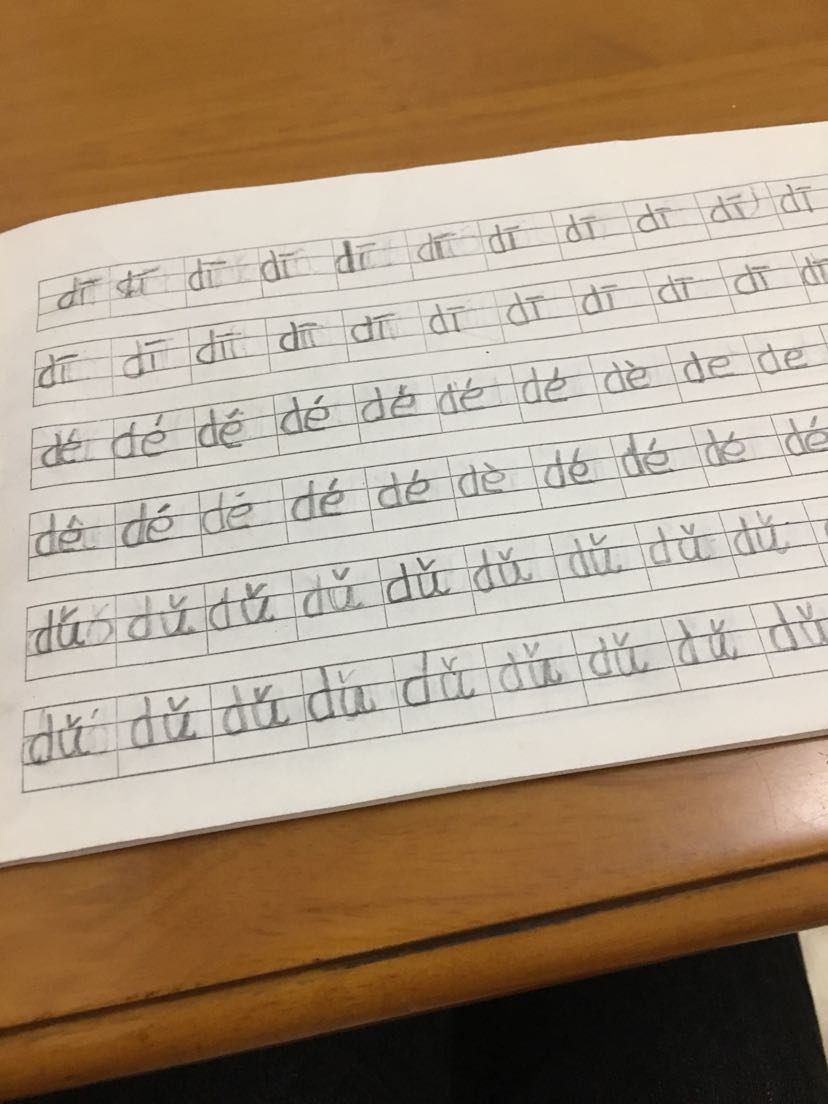 dī dī dī dī dī dī dī dī dī dī dī
dī dī dī dī dī dī dī dī dī dī dī
dé dé dé dé dé dé dé dè de de
dé dé dé dé dé dè dé dé dé dé
dǔ dǔ dǔ dǔ dǔ dǔ dǔ dǔ dǔ
dǔ dǔ dǔ dǔ dǔ dǔ dǔ dǔ dǔ